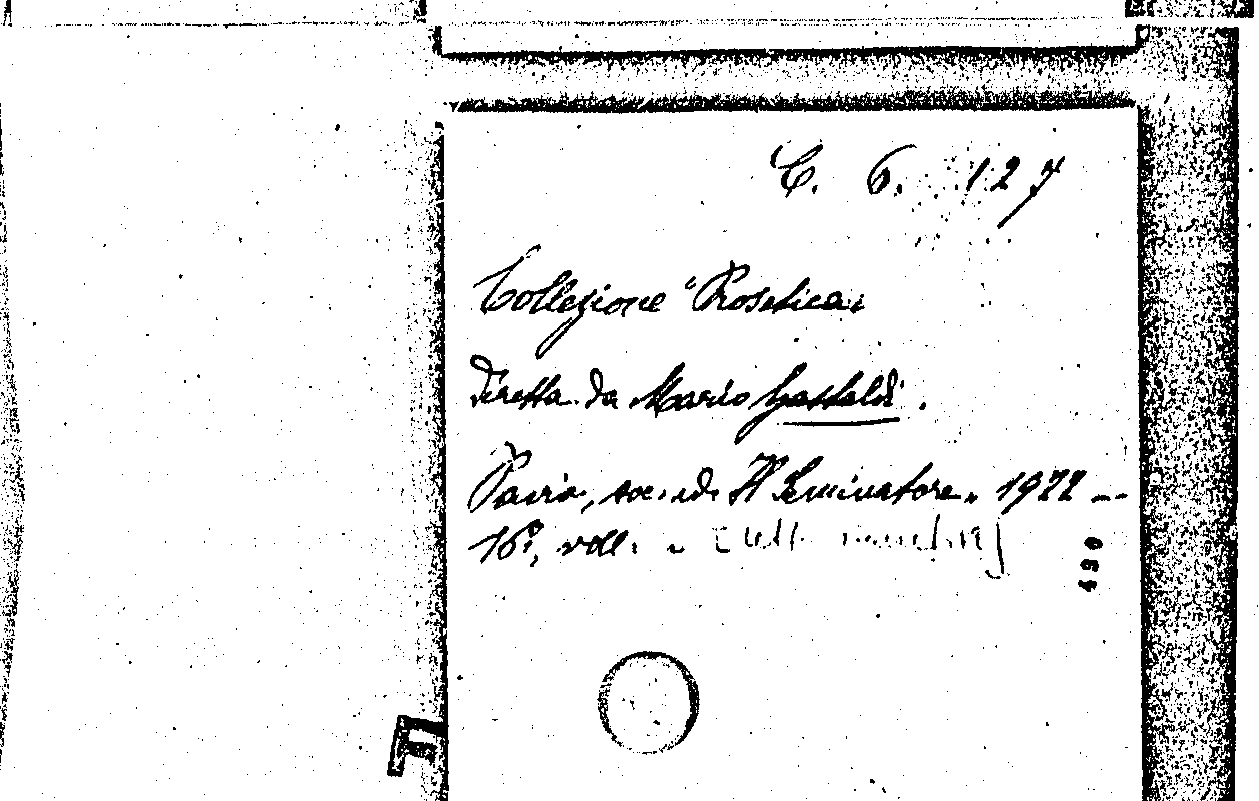 C. 6. 127
Collezione "Prosetica"
diretta da Mario Gastaldi.
Pavia, soc. ed. "Il Seminatore" 1922 --
16°, voll.
490